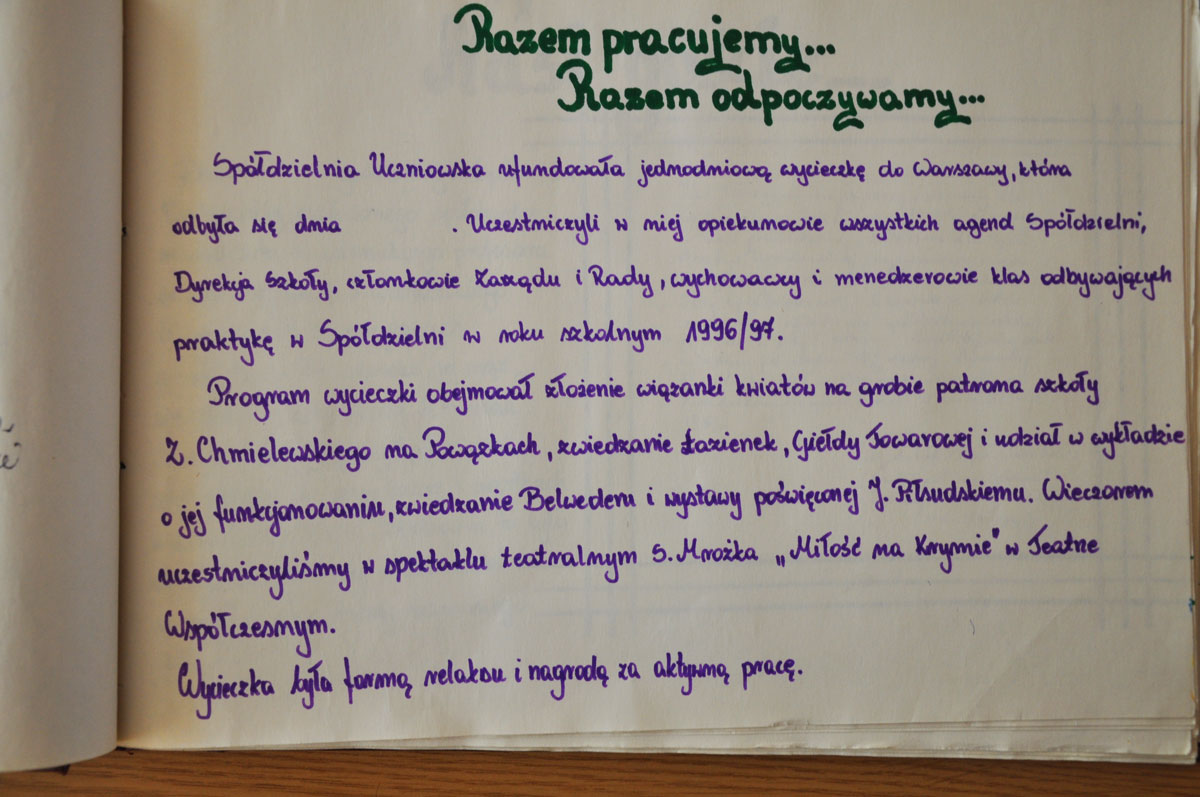 Razem pracujemy...
Razem odpoczywamy...
Spółdzielnia Uczniowska ufundowała jednodniową wycieczkę do Warszawy, która
odbyła się dnia . Uczestniczyli w niej opiekunowie wszystkich agend Spółdzielni,
Dyrekcja Szkoły, członkowie Zarządu i Rady, wychowawcy i menedżerowie klas odbywających
praktykę w Spółdzielni w roku szkolnym 1996/97.
Program wycieczki obejmował złożenie wiązanki kwiatów na grobie patrona szkoły
Z. Chmielewskiego na Powązkach, zwiedzanie Łazienek, Giełdy Towarowej i udział w wykładzie
o jej funkcjonowaniu, zwiedzanie Belwederu i wystawy poświęconej J. Piłsudskiemu. Wieczorem
uczestniczyliśmy w spektaklu teatralnym S. Mrożka „Miłość na Krymie" w Teatrze
Współczesnym.
Wycieczka była formą relaksu i nagrodą za aktywną pracę.